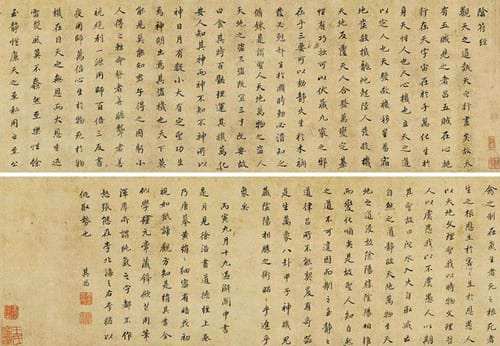 陰符經
觀天之道執天之行盡矣故天
有五賊見之者昌五賊在心施
行在天宇宙在乎手萬化生乎
身天性人也人心機也立天之道
以定人也天發殺機移星易宿
地發殺機龍蛇起陸人發殺機
天地反覆天人合發萬變定基
性有巧拙可以伏藏九竅之邪
在乎三要可以動靜火生於木禍
發必剋奸生於國時動必潰知之
脩鍊是謂聖人天地萬物之盜
天地之盜三盜既宜三才既安故
曰食其時百骸理動其機萬化
安人知其神而神不知不神所以
神日月有數小大有定聖功生
焉神明出焉其盜機也天下莫
能見莫能知君子得之固躬小
人得之輕命瞽者善聽聾者善
視絕利一源用師百倍三反晝
夜用師萬倍心生於物死於物
機在目天之無恩而大恩生迅
雷烈風莫不蠢然至樂性餘
至靜性廉天之至私用之至公
禽之制在炁生者死之根死者
生之根恩生於害害生於恩愚人
以天地文理聖我以時物文理哲
人以虞愚我以不虞愚人以期
其聖故曰沉水入火自取滅亡
自然之道靜故天地萬物生天
地之道浸故陰陽勝陰陽相推
而變化順矣是故聖人知自然
之道不可違因而制之至靜之
道律曆所不能契爰有奇器
是生萬象八卦甲子神機鬼
藏陰陽相勝之術昭昭乎進乎
象矣
丙寅九月十九日 閶門中書
是月見徐浩書道德經上卷
乃唐摹黃絹細密有 花初
視如紙諦觀方知是絹其書全
似學鍾元常藏鋒斂鍔用筆
渾厚所謂純氣之守都不作
怒張態在李北海之右李稍以
取勢也 其昌